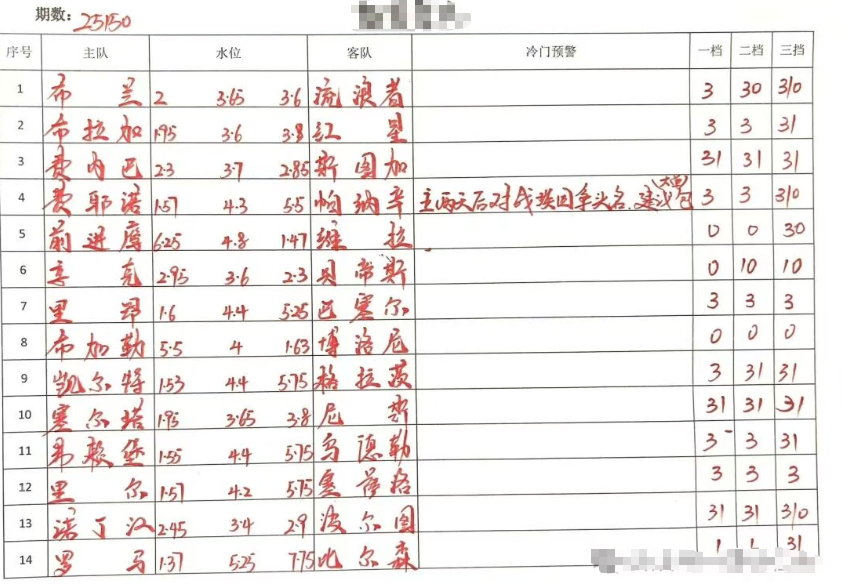 期数: 25150
序号 主队 水位 客队 冷门预警 一档 二档 三挡
1 布兰 2 3.65 3.6 流浪者 3 30 310
2 布拉加 1.95 3.6 3.8 红星 3 3 31
3 费内巴 2.3 3.7 2.85 斯图加 31 31 31
4 费耶诺 1.57 4.3 5.5 帕纳辛 主两天后对战埃因争头名,建议包 大包 3 3 310
5 前进鹰 6.25 4.8 1.47 维拉 0 0 30
6 亨克 2.95 3.6 2.3 贝帝斯 0 10 10
7 里昂 1.6 4.4 5.25 巴塞尔 3 3 3
8 布加勒 5.5 4 1.63 博洛尼 0 0 0
9 凯尔特 1.53 4.4 5.75 格拉茨 3 31 31
10 塞尔塔 1.95 3.65 3.8 尼斯 31 31 31
11 弗赖堡 1.55 4.4 5.75 乌德勒 3 3 31
12 里尔 1.57 4.2 5.75 塞萨洛 3 3 3
13 诺丁汉 2.45 3.4 2.9 波尔图 31 31 310
14 罗马 1.37 5.25 7.75 比尔森 31